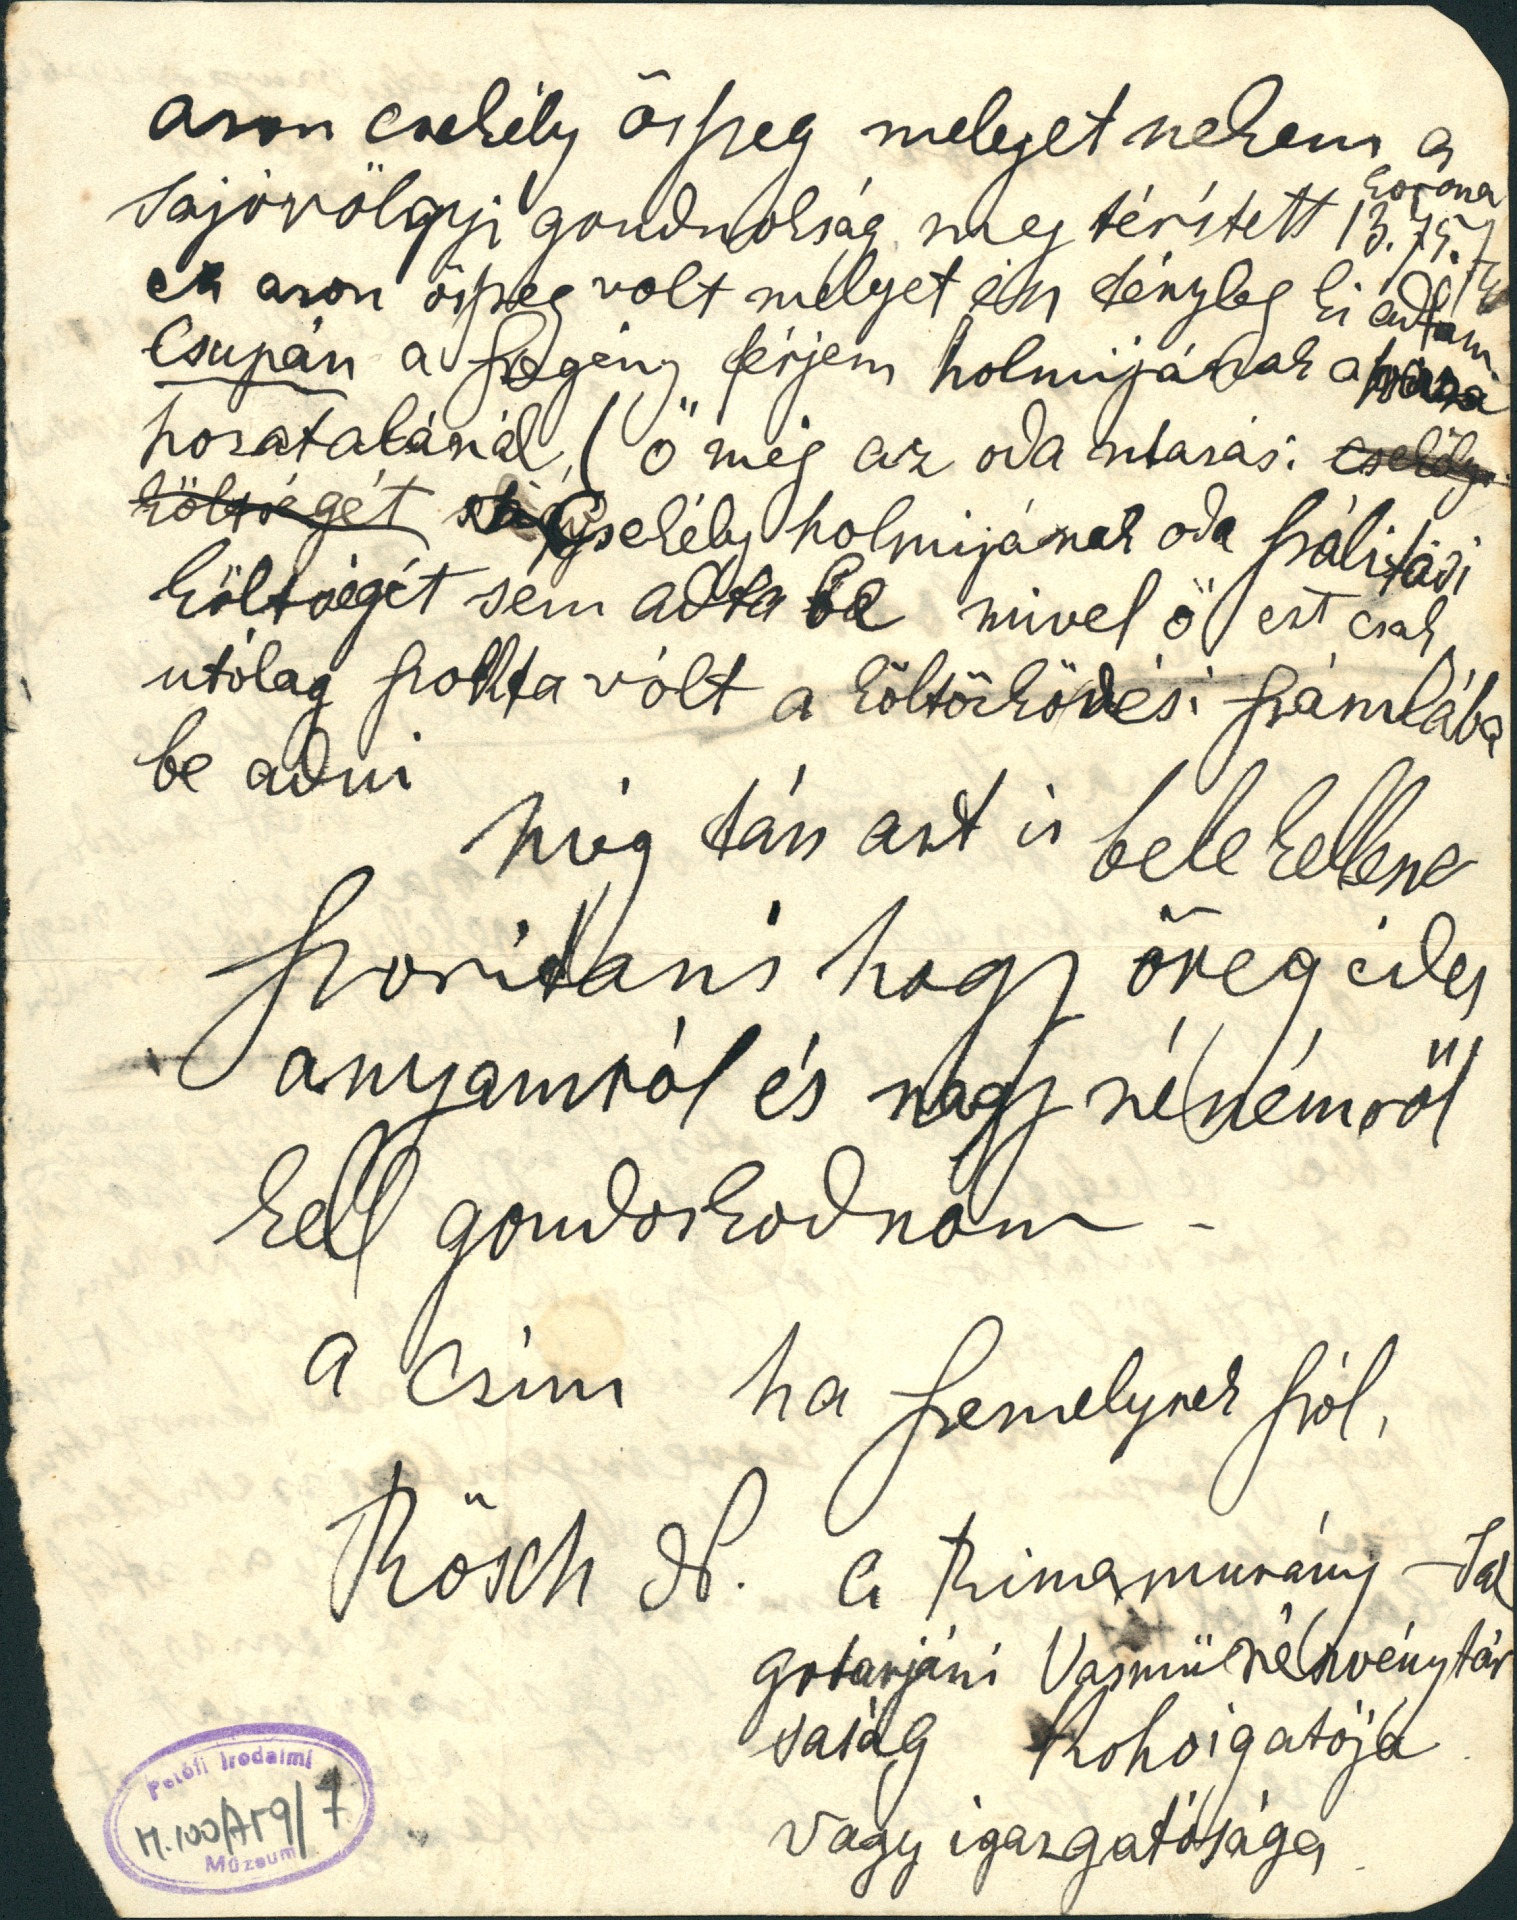 azon csekély összeg melyet nekem a
Sajóvölgyi gondnokság meg térített 13.75. f
korona
ez azon összeg volt melyet én tényleg ki adtam
Csupán a szegény férjem holmijának a haza
hozatalánál, ( ő még az oda utazási csekély
költségét csekély holmijának oda szálitási
költségét sem adta be mivel ő ezt csak
utólag szokta vólt a költözködési számlába
be adni
még tán azt is bele kellene
szoritani hogy öreg édes
anyámról és nagy nénémről
kell gondoskodnom -
a czim ha személynek szól,
Rösch N. a Rimamurány - Sal
gotarjáni Vasmű részvénytár
saság Kohoigatója
vagy igazgatósága
Petőfi Irodalmi
M.100/A59/7
Múzeum